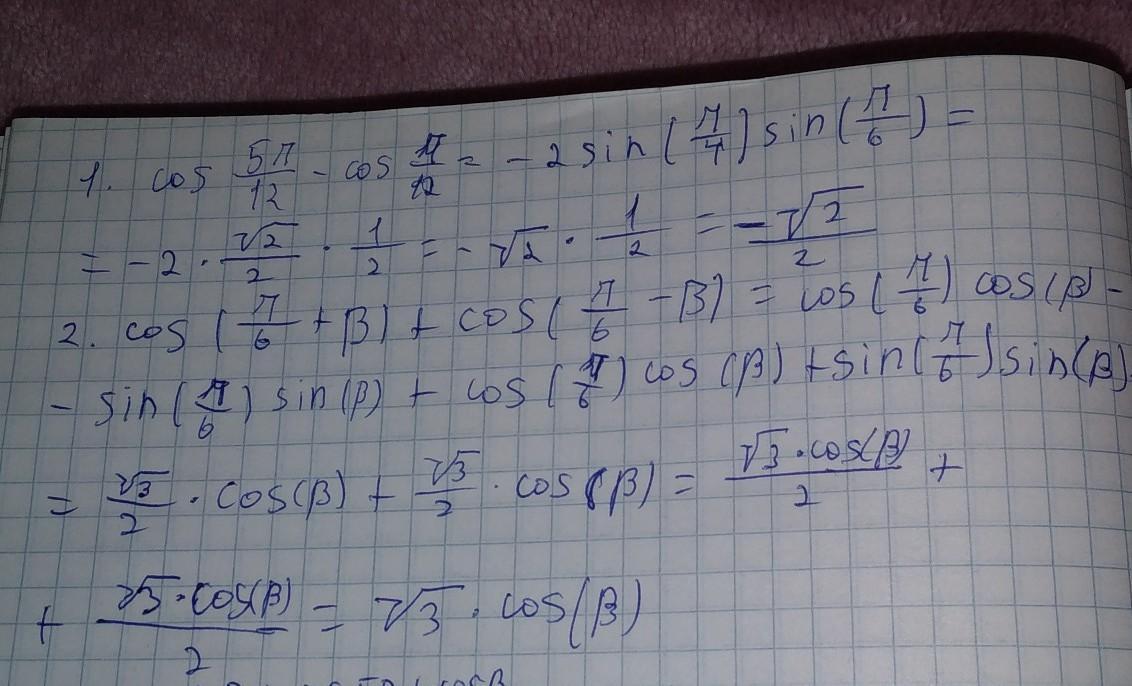 1. cos 5π/12 - cos π/12 = -2 sin (π/4) sin (π/6) =
= -2 · √2/2 · 1/2 = -√2 · 1/2 = -√2/2
2. cos (π/6 + β) + cos (π/6 - β) = cos (π/6) cos (β) -
- sin (π/6) sin (β) + cos (π/6) cos (β) + sin (π/6) sin (β)
= √3/2 · cos(β) + √3/2 · cos (β) = √3·cos(β)/2 +
+ √3·cos(β)/2 = √3 · cos(β)